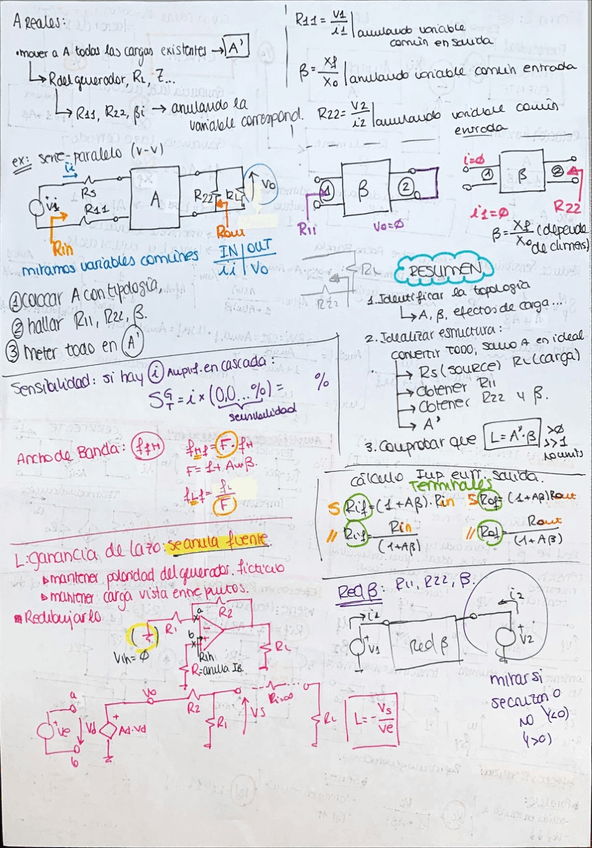 A Reales:
• mover a A todas las cargas existentes → A'
↳ R del generador, RL, Z...
↳ R11, R22, βi → anulando la
variable correspond.
R11 = v1/i1 | anulando variable
común en salida
β = xf/xo | anulando variable común entrada
R22 = v2/i2 | anulando variable común
entrada
ex: serie-paralelo (v-v)
ii
Rs
vi
R11
Rin
A
R22
RL
Vo
Rout
miramos variables comunes
IN | OUT
ii | Vo
1
β
2
R11
Vo=∅
i=∅
1
β
2
i1=∅
R22
β = xf/xo (depende
de climas)
① colocar A con tipología,
② hallar R11, R22, β.
③ Meter todo en A'
RL
R22
RESUMEN
1. Identificar la topología
↳ A, β, efectos de carga...
2. Idealizar estructura:
convertir TODO, salvo A en ideal
→ Rs (source) RL (carga)
→ Obtener R11
→ Obtener R22 y β.
→ A'
3. Comprobar que L = A'·β >0
>>1
Sensibilidad: si hay i Amplif. en cascada:
S = i × (0,0...%) = %
sensibilidad
Ancho de Banda: ffH
fHf = F · fH
F = 1 + Aβ.
fLf = fL/F
Cálculo Imp entr. salida.
Terminales
S Rif = (1+Aβ)·Rin
S Rof = (1+Aβ)Rout
// Rif = Rin/(1+Aβ)
// Rof = Rout/(1+Aβ)
L: ganancia de lazo: se anula fuente
▸ mantener polaridad del generador. ficticio
▸ mantener carga vista entre puntos.
▪ Redibujarlo
Vin=∅
R1
R2
a
b
Rin
R=anula IB.
RL
a
ve
b
Vd
Ad·Vd
Vo
R2
R1
Vs
Ri=∞
RL
L = -Vs/Ve
Red β: R11, R22, β.
i1
v1
Red β
i2
v2
mirar si
se
NO (<0)
(>0)